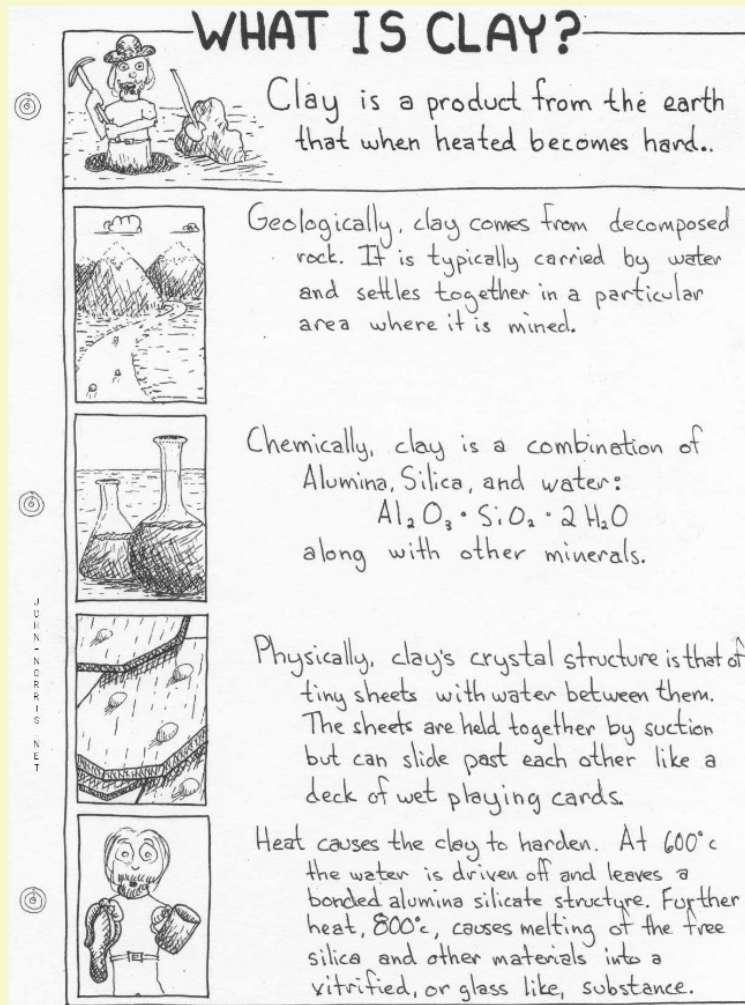 WHAT IS CLAY?
Clay is a product from the earth
that when heated becomes hard..
Geologically, clay comes from decomposed
rock. It is typically carried by water
and settles together in a particular
area where it is mined.
Chemically, clay is a combination of
Alumina, Silica, and water:
Al₂O₃ · SiO₂ · 2H₂O
along with other minerals.
Physically, clay's crystal structure is that of
tiny sheets with water between them.
The sheets are held together by suction
but can slide past each other like a
deck of wet playing cards.
Heat causes the clay to harden. At 600°c
the water is driven off and leaves a
bonded alumina silicate structure. Further
heat, 800°c, causes melting of the free
silica and other materials into a
vitrified, or glass like, substance.
JOHN-NORRIS NET